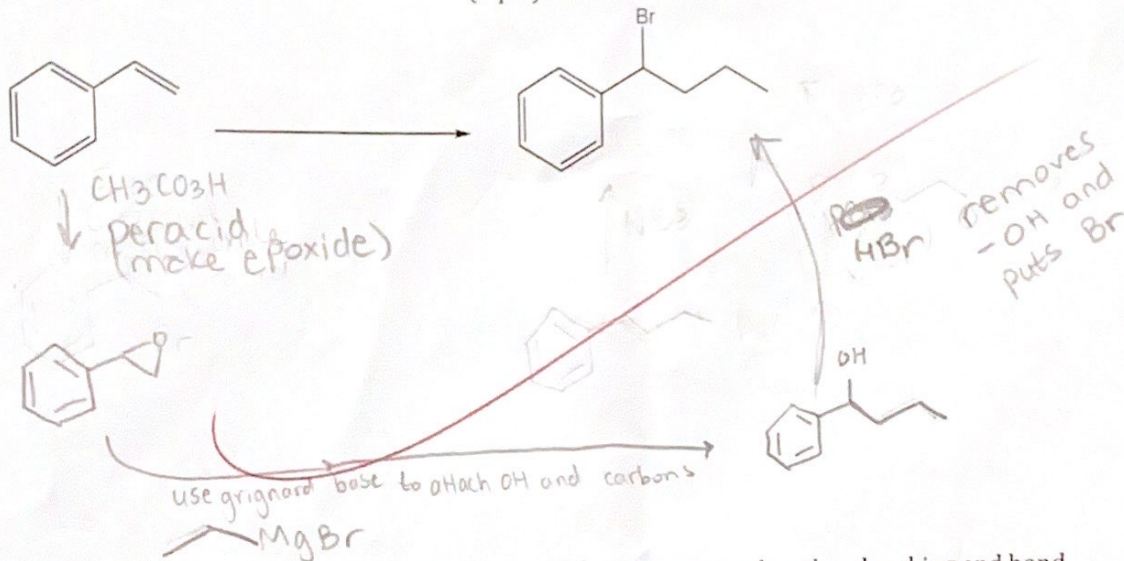 Br
CH3CO3H
peracid
(make epoxide)
HBr
removes
-OH and
puts Br
O
OH
use grignard base to attach OH and carbons
MgBr